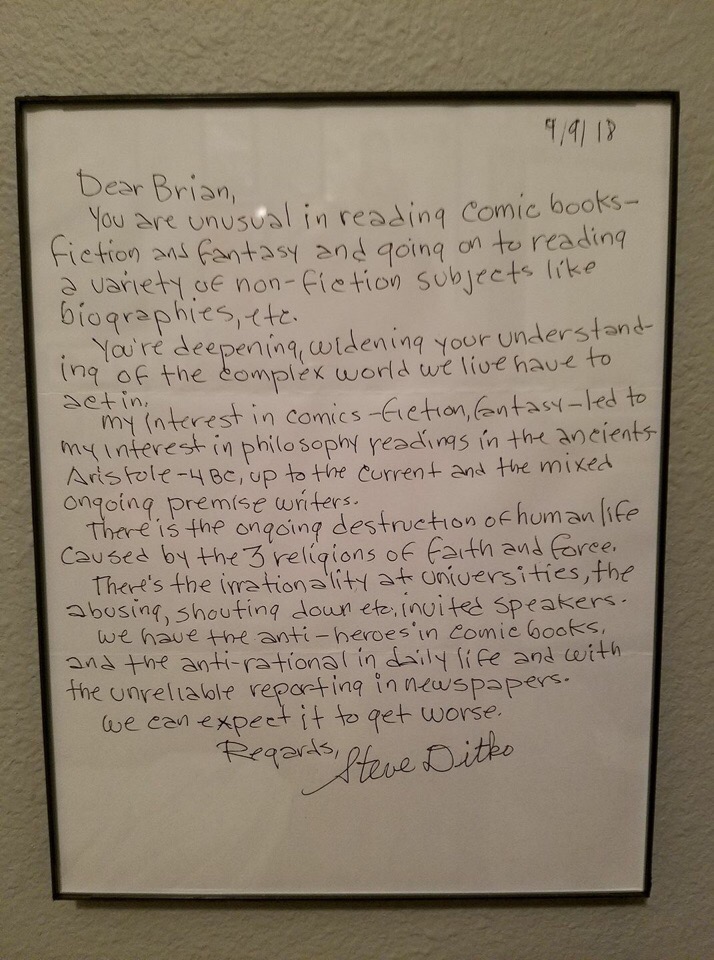 4/9/18
Dear Brian,
You are unusual in reading comic books-
fiction and fantasy and going on to reading
a variety of non-fiction subjects like
biographies, etc.
You're deepening, widening your understand-
ing of the complex world we live have to
act in.
my interest in comics-fiction, fantasy-led to
my interest in philosophy readings in the ancients-
Aristole-4BC, up to the current and the mixed
ongoing premise writers.
There is the ongoing destruction of human life
caused by the 3 religions of faith and force.
There's the irrationality at universities, the
abusing, shouting down etc, invited speakers.
we have the anti-heroes in comic books,
and the anti-rational in daily life and with
the unreliable reporting in newspapers.
we can expect it to get worse.
Regards,
Steve Ditko